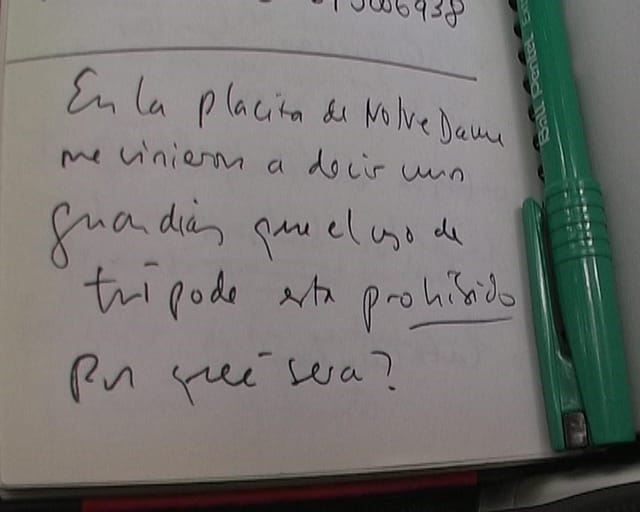 5006938
En la placita de Notre Dame
me vinieron a decir unos
guardias que el uso de
trípode esta prohibido
Por qué será?
Ball Pentel